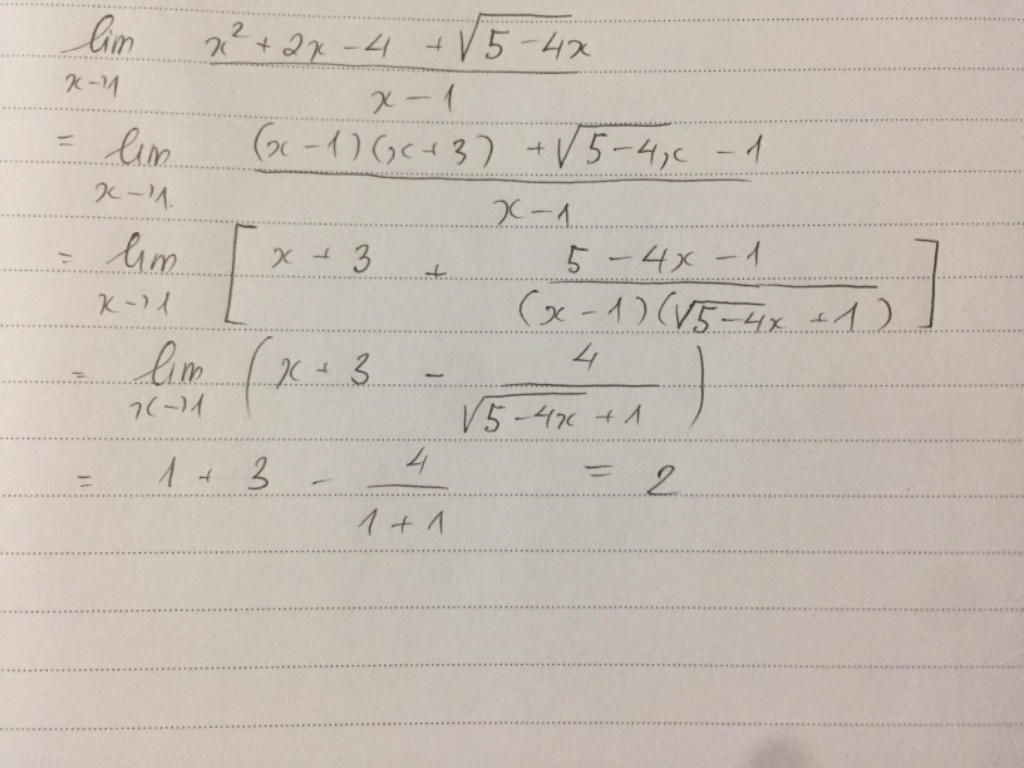 lim x→1 (x² + 2x - 4 + √(5-4x)) / (x - 1)
= lim x→1 ((x - 1)(x + 3) + √(5-4x) - 1) / (x - 1)
= lim x→1 [x + 3 + (5 - 4x - 1) / ((x - 1)(√(5-4x) + 1))]
= lim x→1 (x + 3 - 4 / (√(5-4x) + 1))
= 1 + 3 - 4 / (1 + 1) = 2